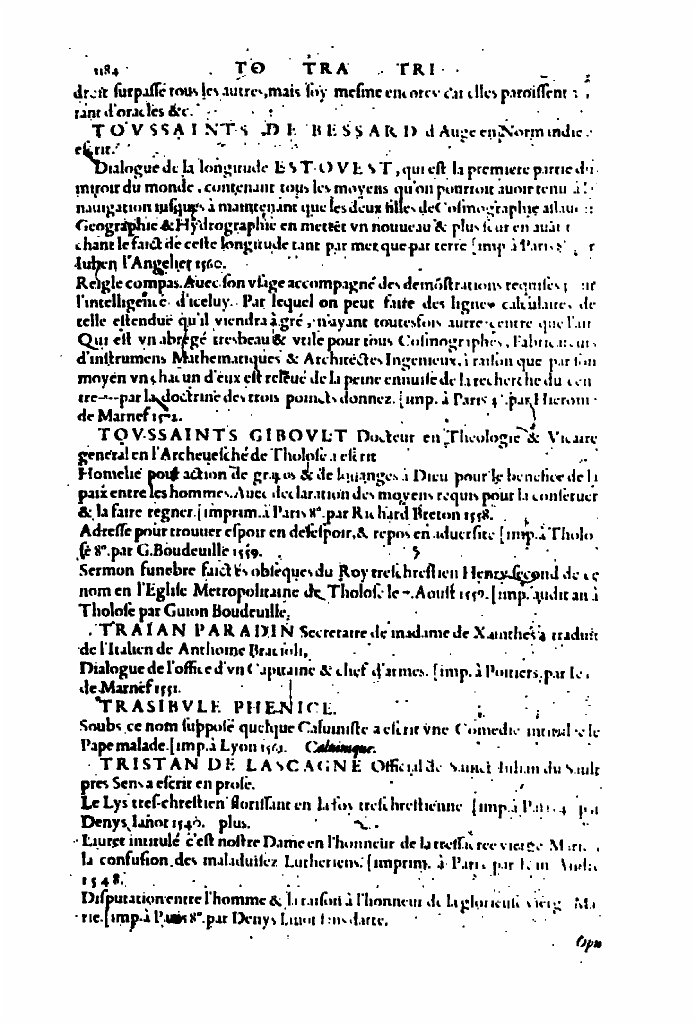 1184 TO TRA TRI
droit surpassé tous les autres, mais soy mesme encores car elles paroissent
tant d'oracles &c.
TOVSSAINTS DE BESSARD d'Auge en Normandie
escrit.
Dialogue de la longitude EST-OVEST, qui est la premiere partie du
miroir du monde, contenant tous les moyens qu'on pourroit auoir tenu à
nauigation iusques à maintenant que les deux filles de Cosmographie assauoir
Geographie & Hydrographie en mettēt vn nouueau & plus seur en auāt
chant le faict de ceste longitude tant par mer que par terre [imp à Paris
Iuhen l'Angelier 1560.
Reigle compas. Auec son vsage accompagné des demōstrations requises
l'intelligence d'iceluy. Par lequel on peut faire des lignes calculaires de
telle estenduë qu'il viendra à gré, n'ayant toutesfois autre centre que l'air
Qui est vn abregé tresbeau & vtile pour tous Cosmographes, Fabricateurs
d'instrumens Mathematiques & Architectes Ingenieux, à raison que par son
moyen vn chacun d'eux est releué de la peine ennuise de la recherche du cen
tre--par la doctrine des trois poincts donnez. [imp. à Paris 4°. par Hierome
de Marnef
TOVSSAINTS GIBOVLT Docteur en Theologie & Vicaire
general en l'Archeuesché de Tholose a escrit
Homelie pour action de graces & de louanges à Dieu pour le benefice de la
paix entre les hommes. Auec declaration des moyens requis pour la conseruer
& la faire regner. [imprim. à Paris 8°. par Richard Breton 1558.
Adresse pour trouuer espoir en desespoir, & repos en aduersité [imp. à Tholo
se 8°. par G. Boudeuille 1559.
Sermon funebre faict és obseques du Roy treschrestien Henry second de ce
nom en l'Eglise Metropolitaine de Tholose le Aoust 1559. [imp. audit an à
Tholose par Guion Boudeuille.
TRAIAN PARADIN Secretaire de madame de Xainthes a traduit
de l'Italien de Anthoine Bracioli,
Dialogue de l'office d'vn Capitaine & chef d'armes. [imp. à Poitiers, par les
de Marnef 1551.
TRASIBVLE PHENICE.
Soubs ce nom supposé quelque Caluiniste a escrit vne Comedie intitulee le
Pape malade. [imp. à Lyon 1561. Caluinique.
TRISTAN DE LASCAGNE Official de Sainct Iulian du Sault
pres Sens a escrit en prose.
Le Lys tres-chrestien florissant en la foy treschrestienne [imp. à Paris 4 par
Denys Ianot 1540. plus.
Liuret intitulé c'est nostre Dame en l'honneur de la tressacree vierge Marie
la confusion des maladuisez Lutheriens. [imprim. à Paris par Iean André
1548.
Disputation entre l'homme & la raison à l'honneur de la glorieuse vierge Ma
rie. [imp. à Paris 8°. par Denys Ianot sans datte.
Opus